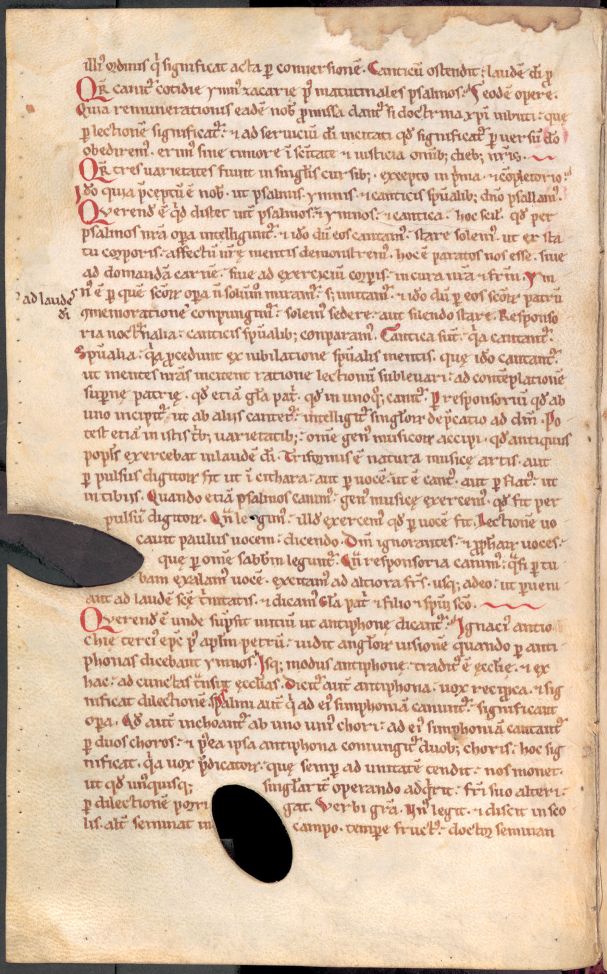 illiꝰ ordinis q̓ significat acta ꝑ conuersionē. Canticū ostendit; laudē di ꝓ
Qr̄ canit᷑ cotidie ymnꝰ zacarie p᷒ matutinales psalmos; Eodē opere.
Quia remunerationis eadē nob̄ ꝓmissa dant᷑ si doctrina xp̄i inbuti: quę
ꝑ lectionē significat᷑. ⁊ ad seruiciū di incitati qd̓ significat᷑ ꝑ uersū do
obediremꝰ. erimꝰ sine timore ī scītate ⁊ iusticia om̄ib; dieb; nr̄is.
Qr̄ tres uarietates fiunt in singlis cursib;. excepto in pͥma. ⁊ cōpletorio:
Ido quia p̄ceptū ē nob̄. ut psalmis ymnis. ⁊ canticis spūalib; dn̄o psallamꝰ.
Querend̄ ē qd̓ distet int̄ psalmos. ⁊ ymnos. ⁊ cantica. hoc scil. qd̓ per
psalmos nr̄a opa intelligunt᷑. ⁊ ido dū eos cantamꝰ. stare solemꝰ. ut ex sta
tu corporis. affectū nr̄ę mentis demonstremꝰ. hoc ē paratos nos esse. siue
ad domandā carnē. siue ad exerciciū corꝑis. in cura nr̄a ⁊ fr̄m. Ym
ad laudē di
nꝰ ē ꝑ quē scōꝝ opa n̄ solum miramꝰ. s; imitamꝰ. ⁊ ido dū ꝑ eos scōꝝ patrū
cōmemoratione conpungimꝰ. solemꝰ sedere. aut silendo stare. Responso
ria noct̓nalia. canticis spūalib; conparamꝰ. Cantica sunt. q̓a cantant᷑.
Spūalia. q̓a ꝓcedunt ex iubilatione spūalis mentis. quę ido cantant᷑.
ut mentes nr̄as incitent ratione lectionū subleuari. ad contēplationē
supnę patrię. qd̓ etiā gl̄a patͥ. qd̓ in unoq; canit᷑. ꝑ responsoriū qd̓ ab
uno incipit᷑. ut ab aliis cantet᷑. intelligit᷑ singloꝝ dep̄catio ad dm̄. Po
test etiā in istis tͥb; uarietatib;. om̄e genꝰ musicoꝝ accipi. qd̓ antiquis
popl̄s exercebat in laudē di. Triformis ē natura musicę artis. aut
ꝑ pulsus digitoꝝ fit ut ī cithara. aut ꝑ uocē. ut ē cantꝰ. aut ꝑ flatꝰ. ut
in tibiis. Quando etiā psalmos canimꝰ. genꝰ musicę exercemꝰ. qd̓ fit per
pulsū digitoꝝ. Qn̄ legimꝰ. illd̓ exercemꝰ qd̓ ꝑ uocē fit. Lectionē uo
cauit paulus uocem: dicendo. Dm̄ ignorantes. ⁊ ꝓphaꝝ uoces.
que ꝑ om̄e sabb̄m legunt᷑. Qn̄ responsoria canimꝰ. qͣsi ꝑ tu
bam exaltam uocē. excitamꝰ ad altiora fr̄s. usq; adeo. ut pueni
ant ad laudē scę tͥnitatis. ⁊ dicam gl̄a patͥ ⁊ filio ⁊ spūi scō.
Querend̄ ē unde sūpsit initiū ut antiphone dicant᷑. Ignaciꝰ antio
chię terciꝰ epc̄ p᷒ aplm̄ petrū. uidit angloꝝ uisionē. quando ꝑ anti
phonas dicebant ymnos. Isq; modus antiphonę. traditꝰ ē ęcclię. ⁊ ex
hac. ad cunctas tͣnsiit ęcclias. Dicit᷑ aut̄ antiphona. uox recipͦca. ⁊ sig
nificat dilectionē. Psalmi aut̄ q̓ ad eiꝰ simphoniā canunt᷑. significant
opa. Qd̓ aut̄ inchoant᷑ ab uno uniꝰ chori. ad eiꝰ simphoniā cantant᷑
ꝑ duos choros. ⁊ p᷒ea ipsa antiphona coniungit᷑ duob; choris. hoc sig
nificat. q̓a uox p̄dicatoꝝ. quę semp ad unitatē tendit. nos monet.
ut qd̓ unꝰquisq; singlarit̄ operando adqͥrit. fr̄i suo alteri.
ꝑ dilectionē porrigat. Verbi gr̄a. Unꝰ legit. ⁊ discit in sco
lis. alt̄ seminat in campo. tempe fructꝰ. doctor seminan